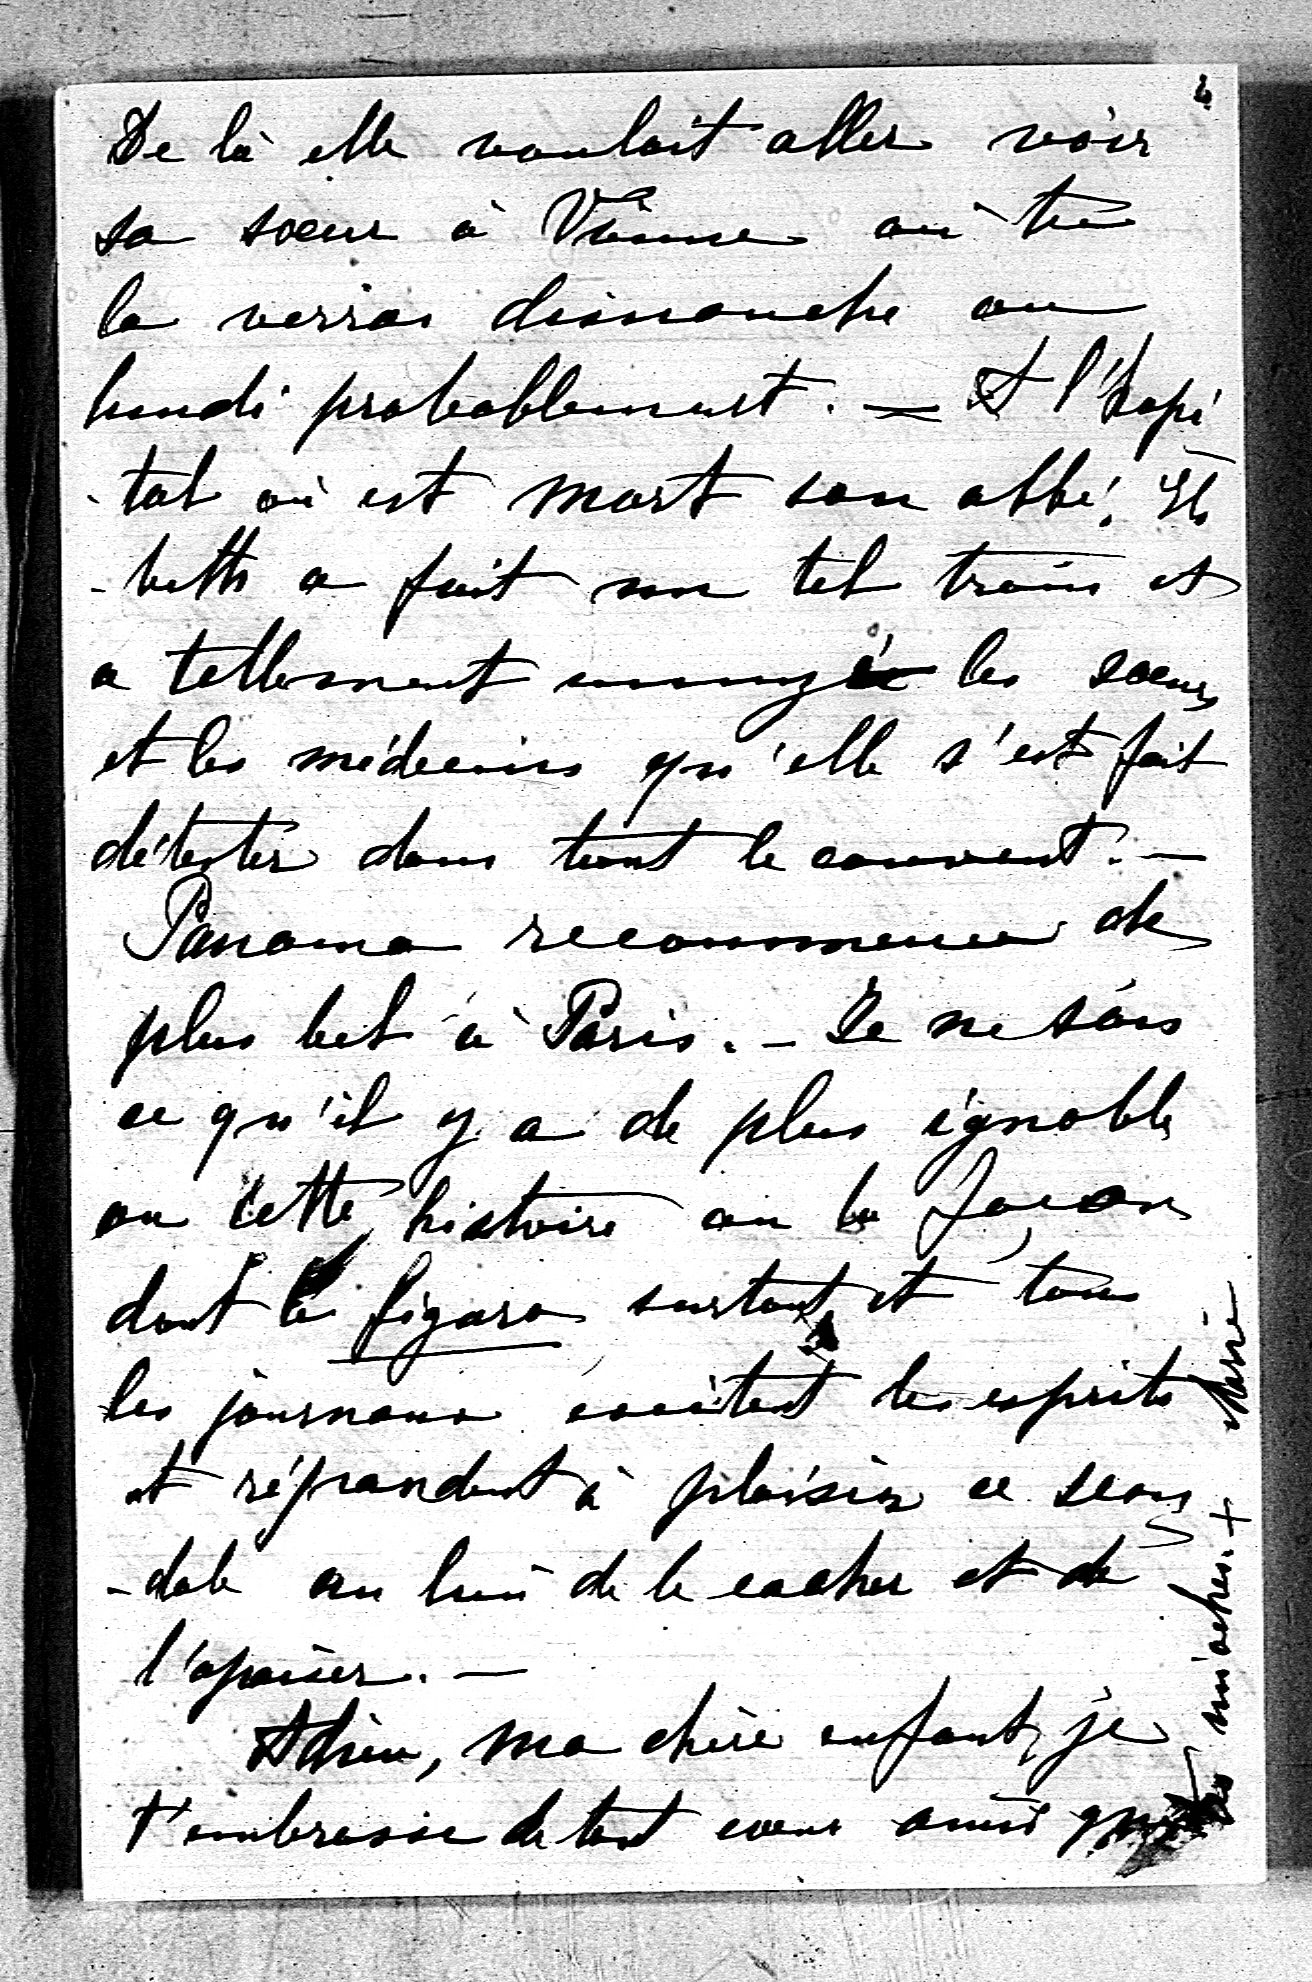 4
De là elle voulait aller voir
sa soeur à Vienne où tu
la verras dimanche ou
lundi probablement. — A l'hopi
-tal où est mort son abbé, Ils
-betts a fait un tel train et
a tellement ennuyé les soeurs
et les médecins qu'elle s'est fait
détester dans tout le couvent. —
Panama recommence de
plus bel à Paris. — Je ne sais
ce qu'il y a de plus ignoble
ou cette histoire ou la façon
dont le figaro surtout et tous
les journaux excitent les esprits
et répandent à plaisir ce scan
-dale au lieu de le cacher et de
l'apaiser. —
Adieu, ma chère enfant, je
t'embrasse de tout coeur ainsi que
mioches. + Marie